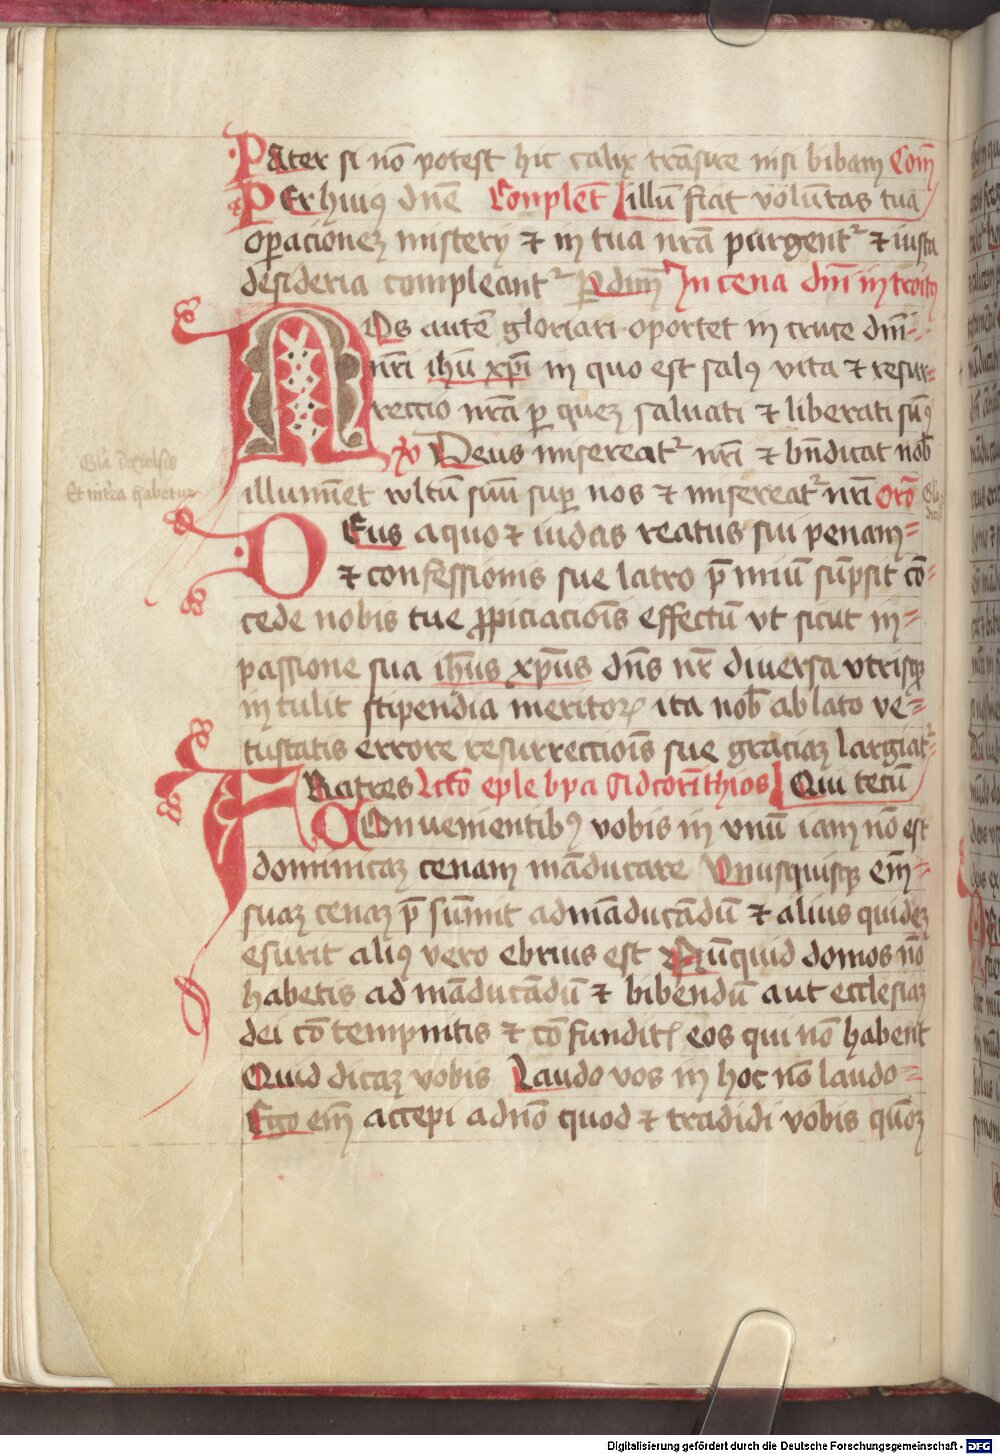 Pater si nō potest hic calix trāsire nisi bibam Com̄
Per huiꝰ dn̄e Conplēt illū fiat volūntas tua
oꝑacionez mistery ⁊ in tua nrā purgent᷑ ⁊ iusta
desideria compleant᷑ ꝑ dn̄m In cena dn̄i introitꝰ
NOs autē gloriari oportet in cruce dn̄i
nr̄i ih̄u xp̄i in quo est salꝰ vita ⁊ resur-
reccio nrā ꝑ quez saluati ⁊ liberati sūꝰ
Deus misereat᷑ nr̄i ⁊ bn̄dicat nob̄
Et infra habetur
illumīet vultum suū suꝑ nos ⁊ misereat᷑ nr̄i Orō
DEus a quo ⁊ iudas reatus sui penam-
⁊ confessionis sue latro p̄miū sūpsit cō-
cede nobis tue ꝓpiciacioīs effectū vt sicut in-
passione sua ih̄us xp̄us dn̄s nr̄ diuersa vtrisqꝫ
intulit stipendia meritoꝝ ita nob̄ ablato ve-
tustatis errore resurreccioīs sue graciaz largiat᷑-
FRatres Lcō ep̄le b pa Ad corīthios Qui tecū
Conuenientibꝰ vobis in vnū iam nō est
dominicaz cenam māducare Vnusquisqꝫ em̄-
suaz cenaz p̄sūmit ad māducādū ⁊ alius quidez
esurit aliꝰ vero ebrius est Nūquid domos nō
habetis ad māducādū ⁊ bibendū aut ecclesiaz
dei cōtempnitis ⁊ cōfunditꝭ eos qui nō habent
Quid dicaz vobis Laudo vos in hoc nō laudo-
Ego em̄ accepi a dn̄o quod ⁊ tradidi vobis qūoz
Digitalisierung gefördert durch die Deutsche Forschungsgemeinschaft - DFG